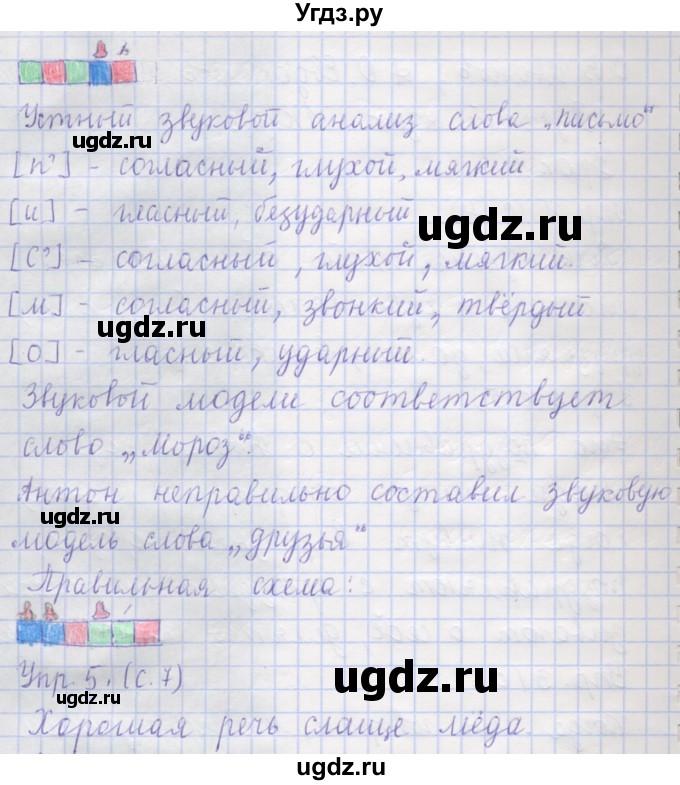 Угдз.ру
Устный звуковой анализ слова „письмо“
ugdz.ru
[п'] - согласный, глухой, мягкий
[и] - гласный, безударный
ugdz.ru
[с'] - согласный, глухой, мягкий.
[м] - согласный, звонкий, твёрдый
ugdz.ru
[о] - гласный, ударный.
Звуковой модели соответствует
слово „мороз“.
ugdz.ru
Антон неправильно составил звуковую
ugdz.ru
модель слова „друзья“
Правильная схема:
Упр. 5. (с. 7)
ugdz.ru
ugdz.ru
Хорошая речь слаще мёда
ugdz.ru